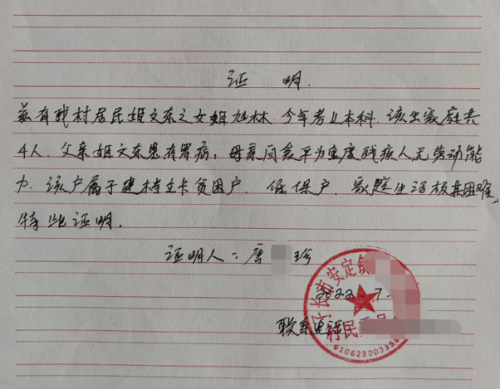 证 明.
兹有我村居民姬文东之女姬旭林.今年考上本科.该生家庭共
4人.父亲姬文东患有胃病,母亲闫爱平为重度残疾人无劳动能
力.该户属于建档立卡贫困户.低保户.家庭生活极其困难,
特此证明.
证明人:唐 珍
子长市安定镇
2022.7.
联系电话
村民委员